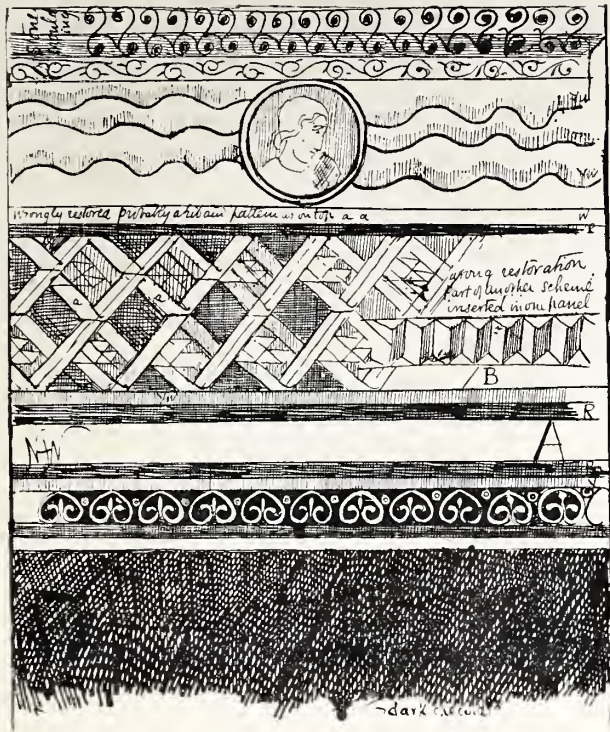 stone
mould
ing
a
wrongly restored probably a ribain pattern as on top a a
W
R
wrong restoration
part of another scheme
inserted in one panel
a
a
B
R
A
dark